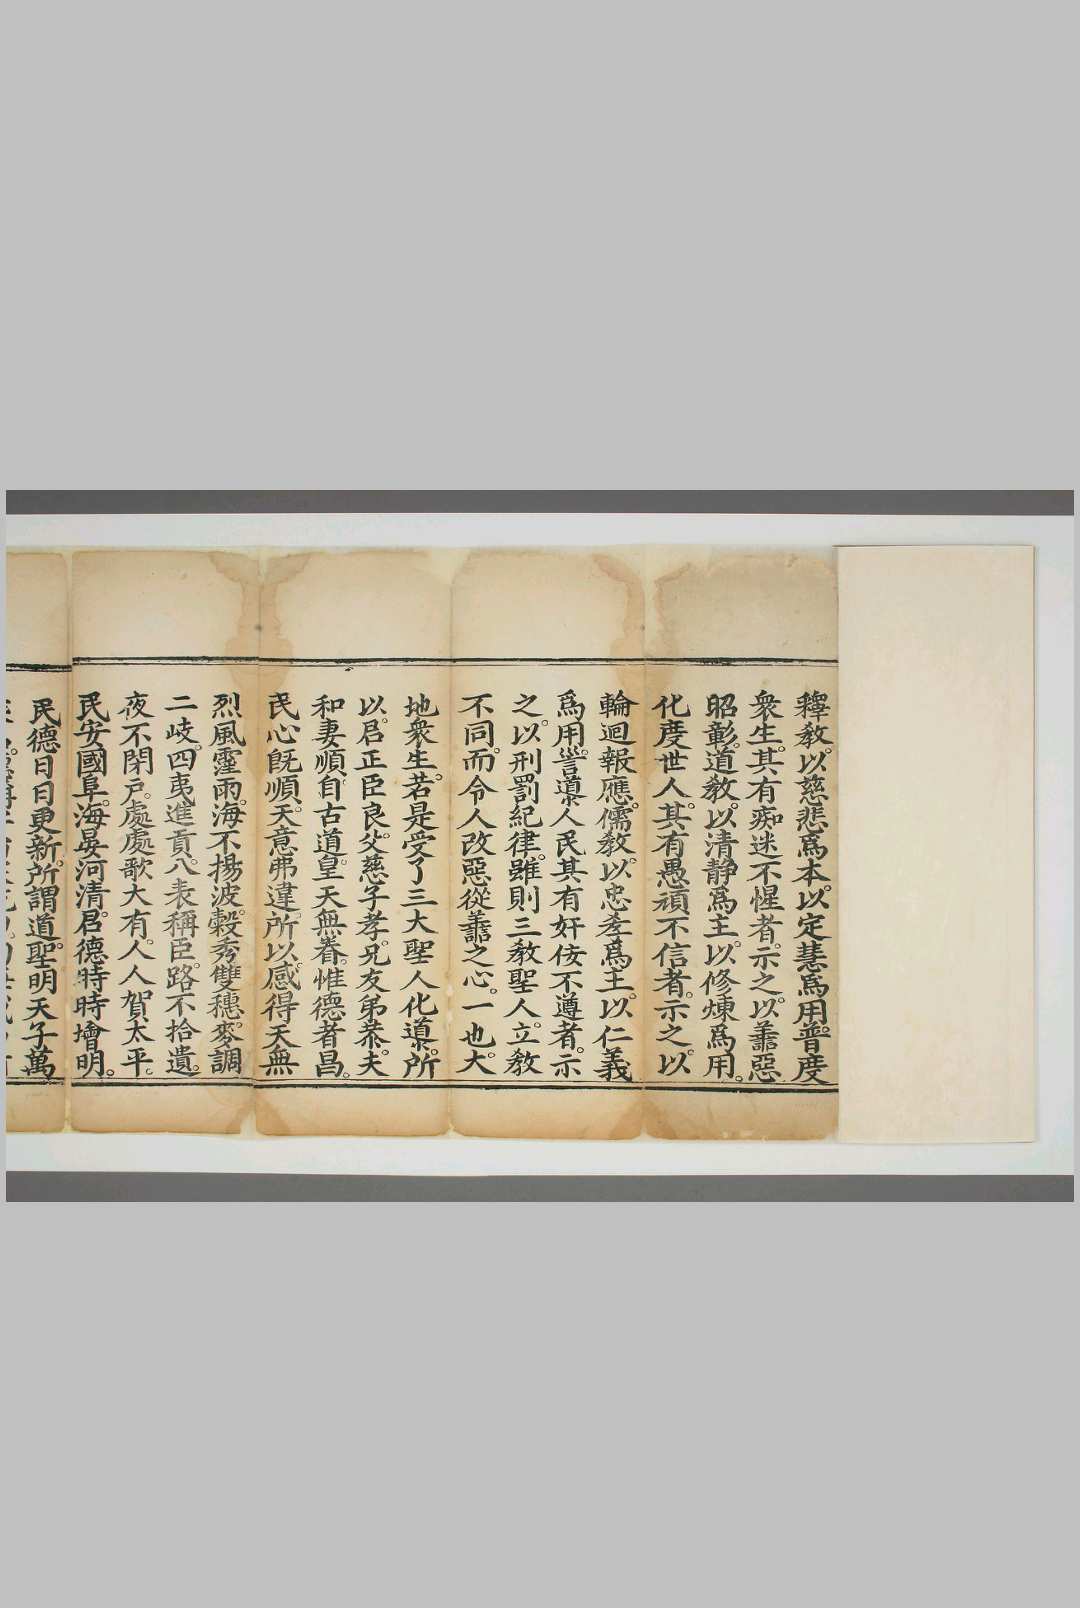 釋教。以慈悲爲本。以定慧爲用。普度
衆生。其有痴迷不惺者。示之。以善惡
昭彰。道教。以清静爲主。以修煉爲用。
化度世人。其有愚頑不信者。示之。以
輪迴報應。儒教。以忠孝爲主。以仁義
爲用。訓導人民其有奸佞不遵者。示
之。以刑罰紀律。雖則三教聖人。立教
不同。而令人改惡從善之心。一也。大
地衆生。若是受了三大聖人化導。所
以。君正臣良。父慈子孝。兄友弟恭。夫
和妻順。自古道。皇天無眷。惟德者昌。
民心既順。天意弗違。所以。感得天無
烈風霪雨。海不揚波。穀秀雙穗。麥調
二岐。四夷進貢。八表稱臣。路不拾遺。
夜不閉戸。處處歌大有。人人賀太平。
民安國阜。海晏河清。君德時時增明。
民德日日更新。所謂道。聖明天子萬